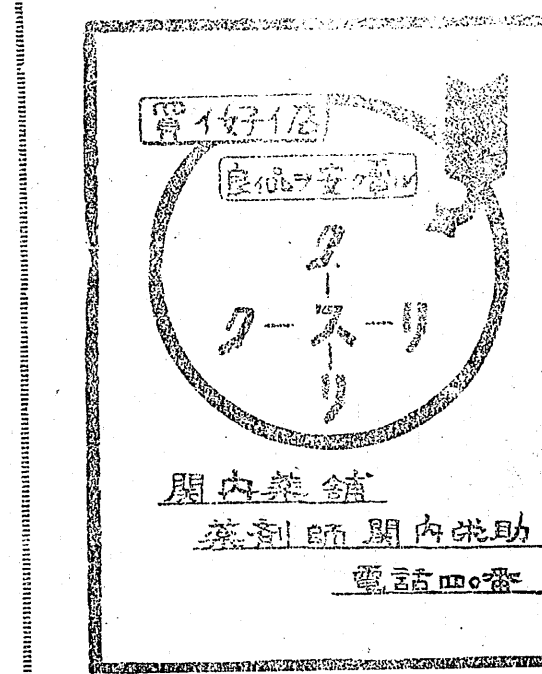 買イ好イ店
良イ品ヲ安ク売ル
ク
クスリ
リ
関内薬舗
薬剤師関内栄助
電話四〇番